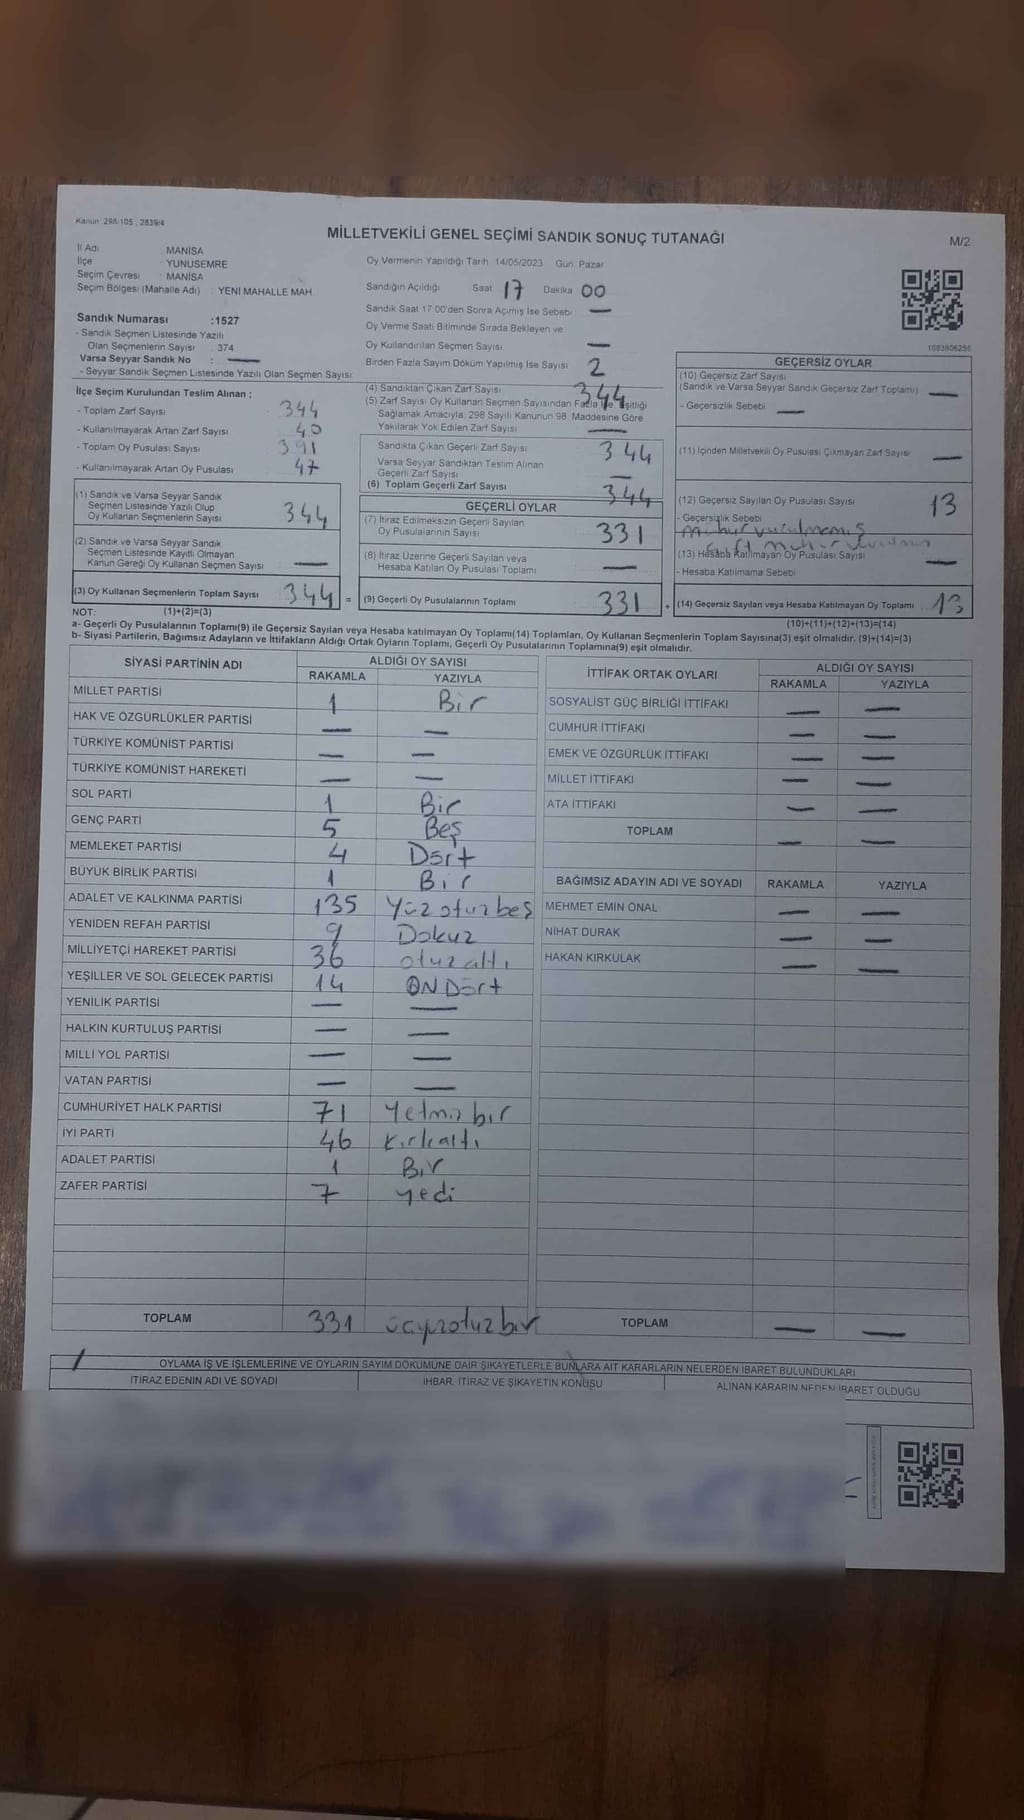 Kanun: 298/105 , 2839/4
MİLLETVEKİLİ GENEL SEÇİMİ SANDIK SONUÇ TUTANAĞI
M/2
İl Adı : MANİSA
İlçe : YUNUSEMRE
Seçim Çevresi : MANİSA
Seçim Bölgesi (Mahalle Adı) : YENİ MAHALLE MAH.
Sandık Numarası :1527
- Sandık Seçmen Listesinde Yazılı
Olan Seçmenlerin Sayısı : 374
Varsa Seyyar Sandık No : —
- Seyyar Sandık Seçmen Listesinde Yazılı Olan Seçmen Sayısı:
Oy Vermenin Yapıldığı Tarih: 14/05/2023 Gün: Pazar
Sandığın Açıldığı Saat 17 Dakika 00
Sandık Saat 17:00'den Sonra Açımış İse Sebebi —
Oy Verme Saati Bitiminde Sırada Bekleyen ve
Oy Kullandırılan Seçmen Sayısı —
Birden Fazla Sayım Döküm Yapılmış İse Sayısı 2
İlçe Seçim Kurulundan Teslim Alınan ;
- Toplam Zarf Sayısı 344
- Kullanılmayarak Artan Zarf Sayısı 40
- Toplam Oy Pusulası Sayısı 391
- Kullanılmayarak Artan Oy Pusulası 47
(1) Sandık ve Varsa Seyyar Sandık
Seçmen Listesinde Yazılı Olup
Oy Kullanan Seçmenlerin Sayısı 344
(2) Sandık ve Varsa Seyyar Sandık
Seçmen Listesinde Kayıtlı Olmayan
Kanun Gereği Oy Kullanan Seçmen Sayısı —
(3) Oy Kullanan Seçmenlerin Toplam Sayısı 344 =
(4) Sandıktan Çıkan Zarf Sayısı 344
(5) Zarf Sayısı Oy Kullanan Seçmen Sayısından Fazla İse, Eşitliği
Sağlamak Amacıyla; 298 Sayılı Kanunun 98. Maddesine Göre
Yakılarak Yok Edilen Zarf Sayısı —
Sandıkta Çıkan Geçerli Zarf Sayısı 344
Varsa Seyyar Sandıktan Teslim Alınan
Geçerli Zarf Sayısı —
(6) Toplam Geçerli Zarf Sayısı 344
GEÇERLİ OYLAR
(7) İtiraz Edilmeksizin Geçerli Sayılan
Oy Pusulalarının Sayısı 331
(8) İtiraz Üzerine Geçerli Sayılan veya
Hesaba Katılan Oy Pusulası Toplamı —
(9) Geçerli Oy Pusulalarının Toplamı 331 +
1083806256
GEÇERSİZ OYLAR
(10) Geçersiz Zarf Sayısı
(Sandık ve Varsa Seyyar Sandık Geçersiz Zarf Toplamı) —
- Geçersizlik Sebebi —
(11) İçinden Milletvekili Oy Pusulası Çıkmayan Zarf Sayısı —
(12) Geçersiz Sayılan Oy Pusulası Sayısı 13
- Geçersizlik Sebebi
mühür vurulmamış
(13) Hesaba Katılmayan Oy Pusulası Sayısı —
- Hesaba Katılmama Sebebi
(14) Geçersiz Sayılan veya Hesaba Katılmayan Oy Toplamı 13
NOT: (1)+(2)=(3) (10)+(11)+(12)+(13)=(14)
a- Geçerli Oy Pusulalarının Toplamı(9) ile Geçersiz Sayılan veya Hesaba katılmayan Oy Toplamı(14) Toplamları, Oy Kullanan Seçmenlerin Toplam Sayısına(3) eşit olmalıdır. (9)+(14)=(3)
b- Siyasi Partilerin, Bağımsız Adayların ve İttifakların Aldığı Ortak Oyların Toplamı, Geçerli Oy Pusulalarının Toplamına(9) eşit olmalıdır.
SİYASİ PARTİNİN ADI ALDIĞI OY SAYISI
RAKAMLA YAZIYLA
MİLLET PARTİSİ 1 Bir
HAK VE ÖZGÜRLÜKLER PARTİSİ — —
TÜRKİYE KOMÜNİST PARTİSİ — —
TÜRKİYE KOMÜNİST HAREKETİ — —
SOL PARTİ 1 Bir
GENÇ PARTİ 5 Beş
MEMLEKET PARTİSİ 4 Dört
BÜYÜK BİRLİK PARTİSİ 1 Bir
ADALET VE KALKINMA PARTİSİ 135 Yüzotuzbeş
YENİDEN REFAH PARTİSİ 9 Dokuz
MİLLİYETÇİ HAREKET PARTİSİ 36 otuzaltı
YEŞİLLER VE SOL GELECEK PARTİSİ 14 ONDört
YENİLİK PARTİSİ — —
HALKIN KURTULUŞ PARTİSİ — —
MİLLİ YOL PARTİSİ — —
VATAN PARTİSİ — —
CUMHURİYET HALK PARTİSİ 71 Yetmiş bir
İYİ PARTİ 46 Kırkaltı
ADALET PARTİSİ 1 Bir
ZAFER PARTİSİ 7 yedi
TOPLAM 331 üçyüzotuzbir
İTTİFAK ORTAK OYLARI ALDIĞI OY SAYISI
RAKAMLA YAZIYLA
SOSYALİST GÜÇ BİRLİĞİ İTTİFAKI — —
CUMHUR İTTİFAKI — —
EMEK VE ÖZGÜRLÜK İTTİFAKI — —
MİLLET İTTİFAKI — —
ATA İTTİFAKI — —
TOPLAM — —
BAĞIMSIZ ADAYIN ADI VE SOYADI RAKAMLA YAZIYLA
MEHMET EMİN ÖNAL — —
NİHAT DURAK — —
HAKAN KIRKULAK — —
TOPLAM — —
OYLAMA İŞ VE İŞLEMLERİNE VE OYLARIN SAYIM DÖKÜMÜNE DAİR ŞİKAYETLERLE BUNLARA AİT KARARLARIN NELERDEN İBARET BULUNDUKLARI
İTİRAZ EDENİN ADI VE SOYADI İHBAR, İTİRAZ VE ŞİKAYETİN KONUSU ALINAN KARARIN NEDEN İBARET OLDUĞU